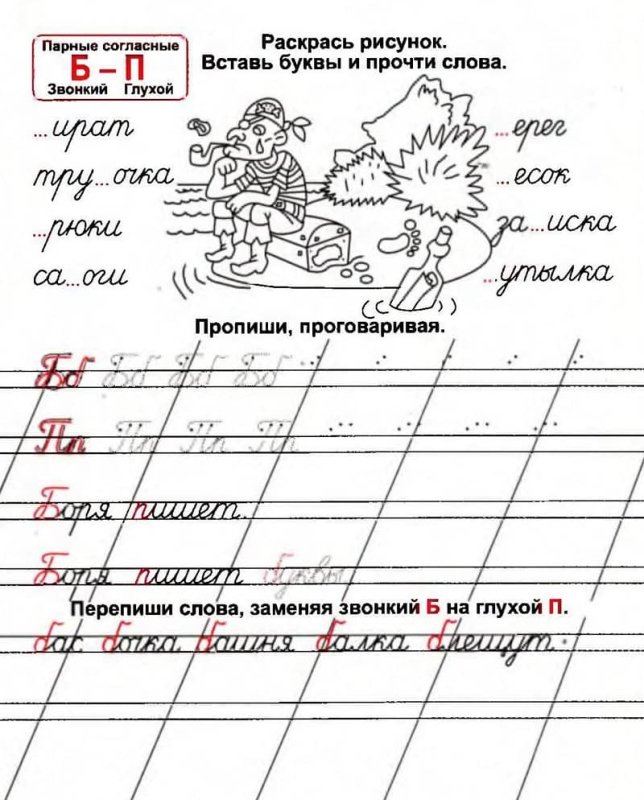 Парные согласные
Б – П
Звонкий Глухой
Раскрась рисунок.
Вставь буквы и прочти слова.
...ират
тру...очка
...рюки
са...оги
...ерег
...есок
за...иска
...утылка
Пропиши, проговаривая.
Бб Бб Бб Бб
Пп Пп Пп Пп
Боря пишет.
Боря пишет буквы.
Перепиши слова, заменяя звонкий Б на глухой П.
бас бочка башня балка блещут.